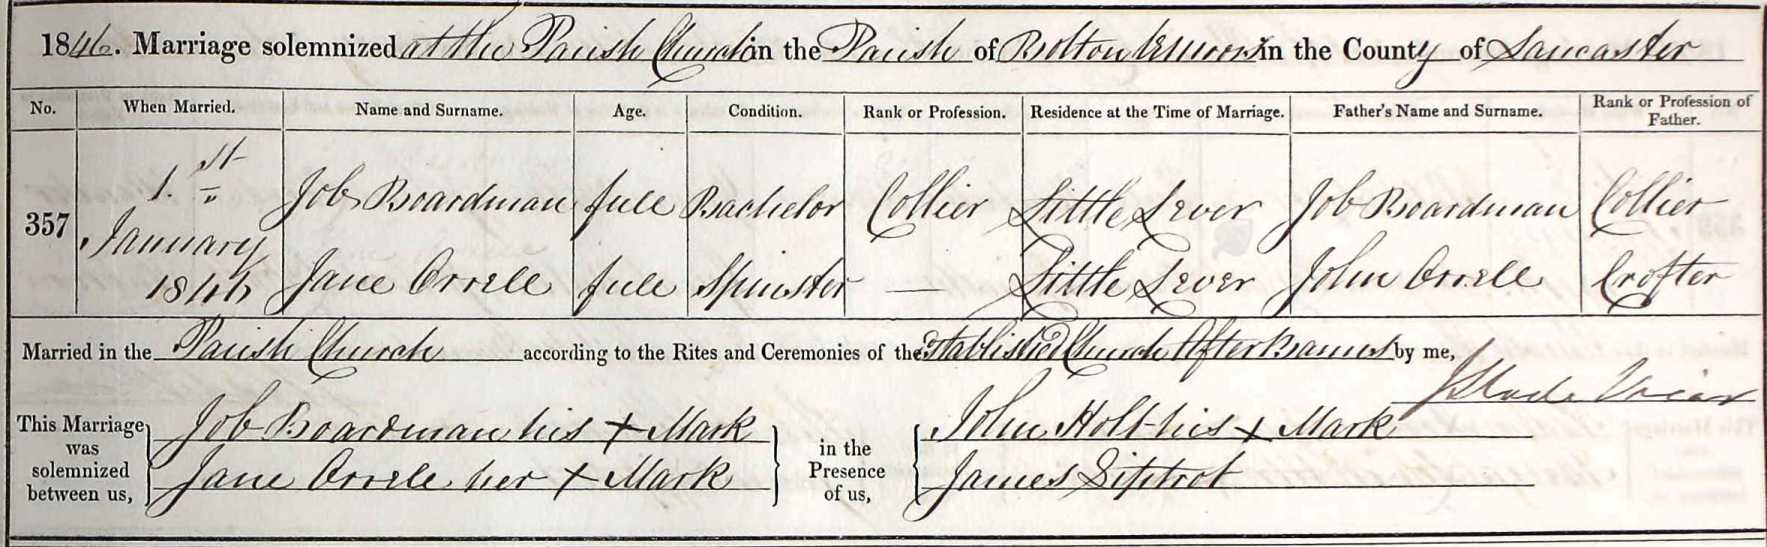 1846. Marriage solemnized at the Parish Church in the Parish of Bolton le moors in the County of Lancaster
No. When Married. Name and Surname. Age. Condition. Rank or Profession. Residence at the Time of Marriage. Father's Name and Surname. Rank or Profession of Father.
357 1.st January 1846 Job Boardman full Bachelor Collier Little Lever Job Boardman Collier
Jane Orrell full Spinster — Little Lever John Orrell Crofter
Married in the Parish Church according to the Rites and Ceremonies of the Established Church After Banns by me,
J Slade Vicar
This Marriage was solemnized between us, Job Boardman his + Mark in the Presence of us, John Holt his + Mark
Jane Orrell her + Mark James Siptrot